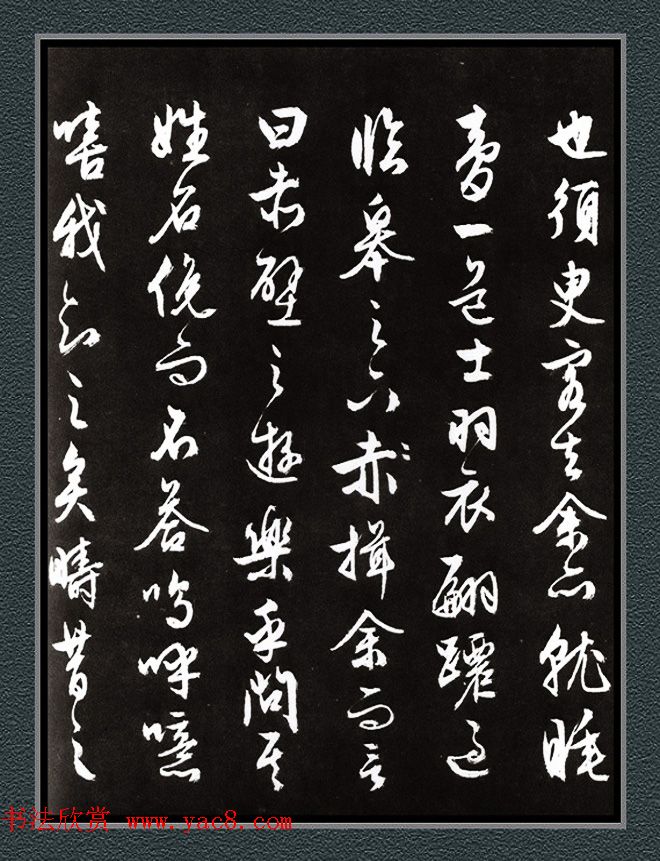 也須臾客去余亦就睡
夢一道士羽衣翩躚過
臨皋之下赤揖余而言
曰赤壁之遊樂乎問其
姓名俛而不答嗚呼噫
嘻我知之矣疇昔之
书法欣赏 www.yac8.com